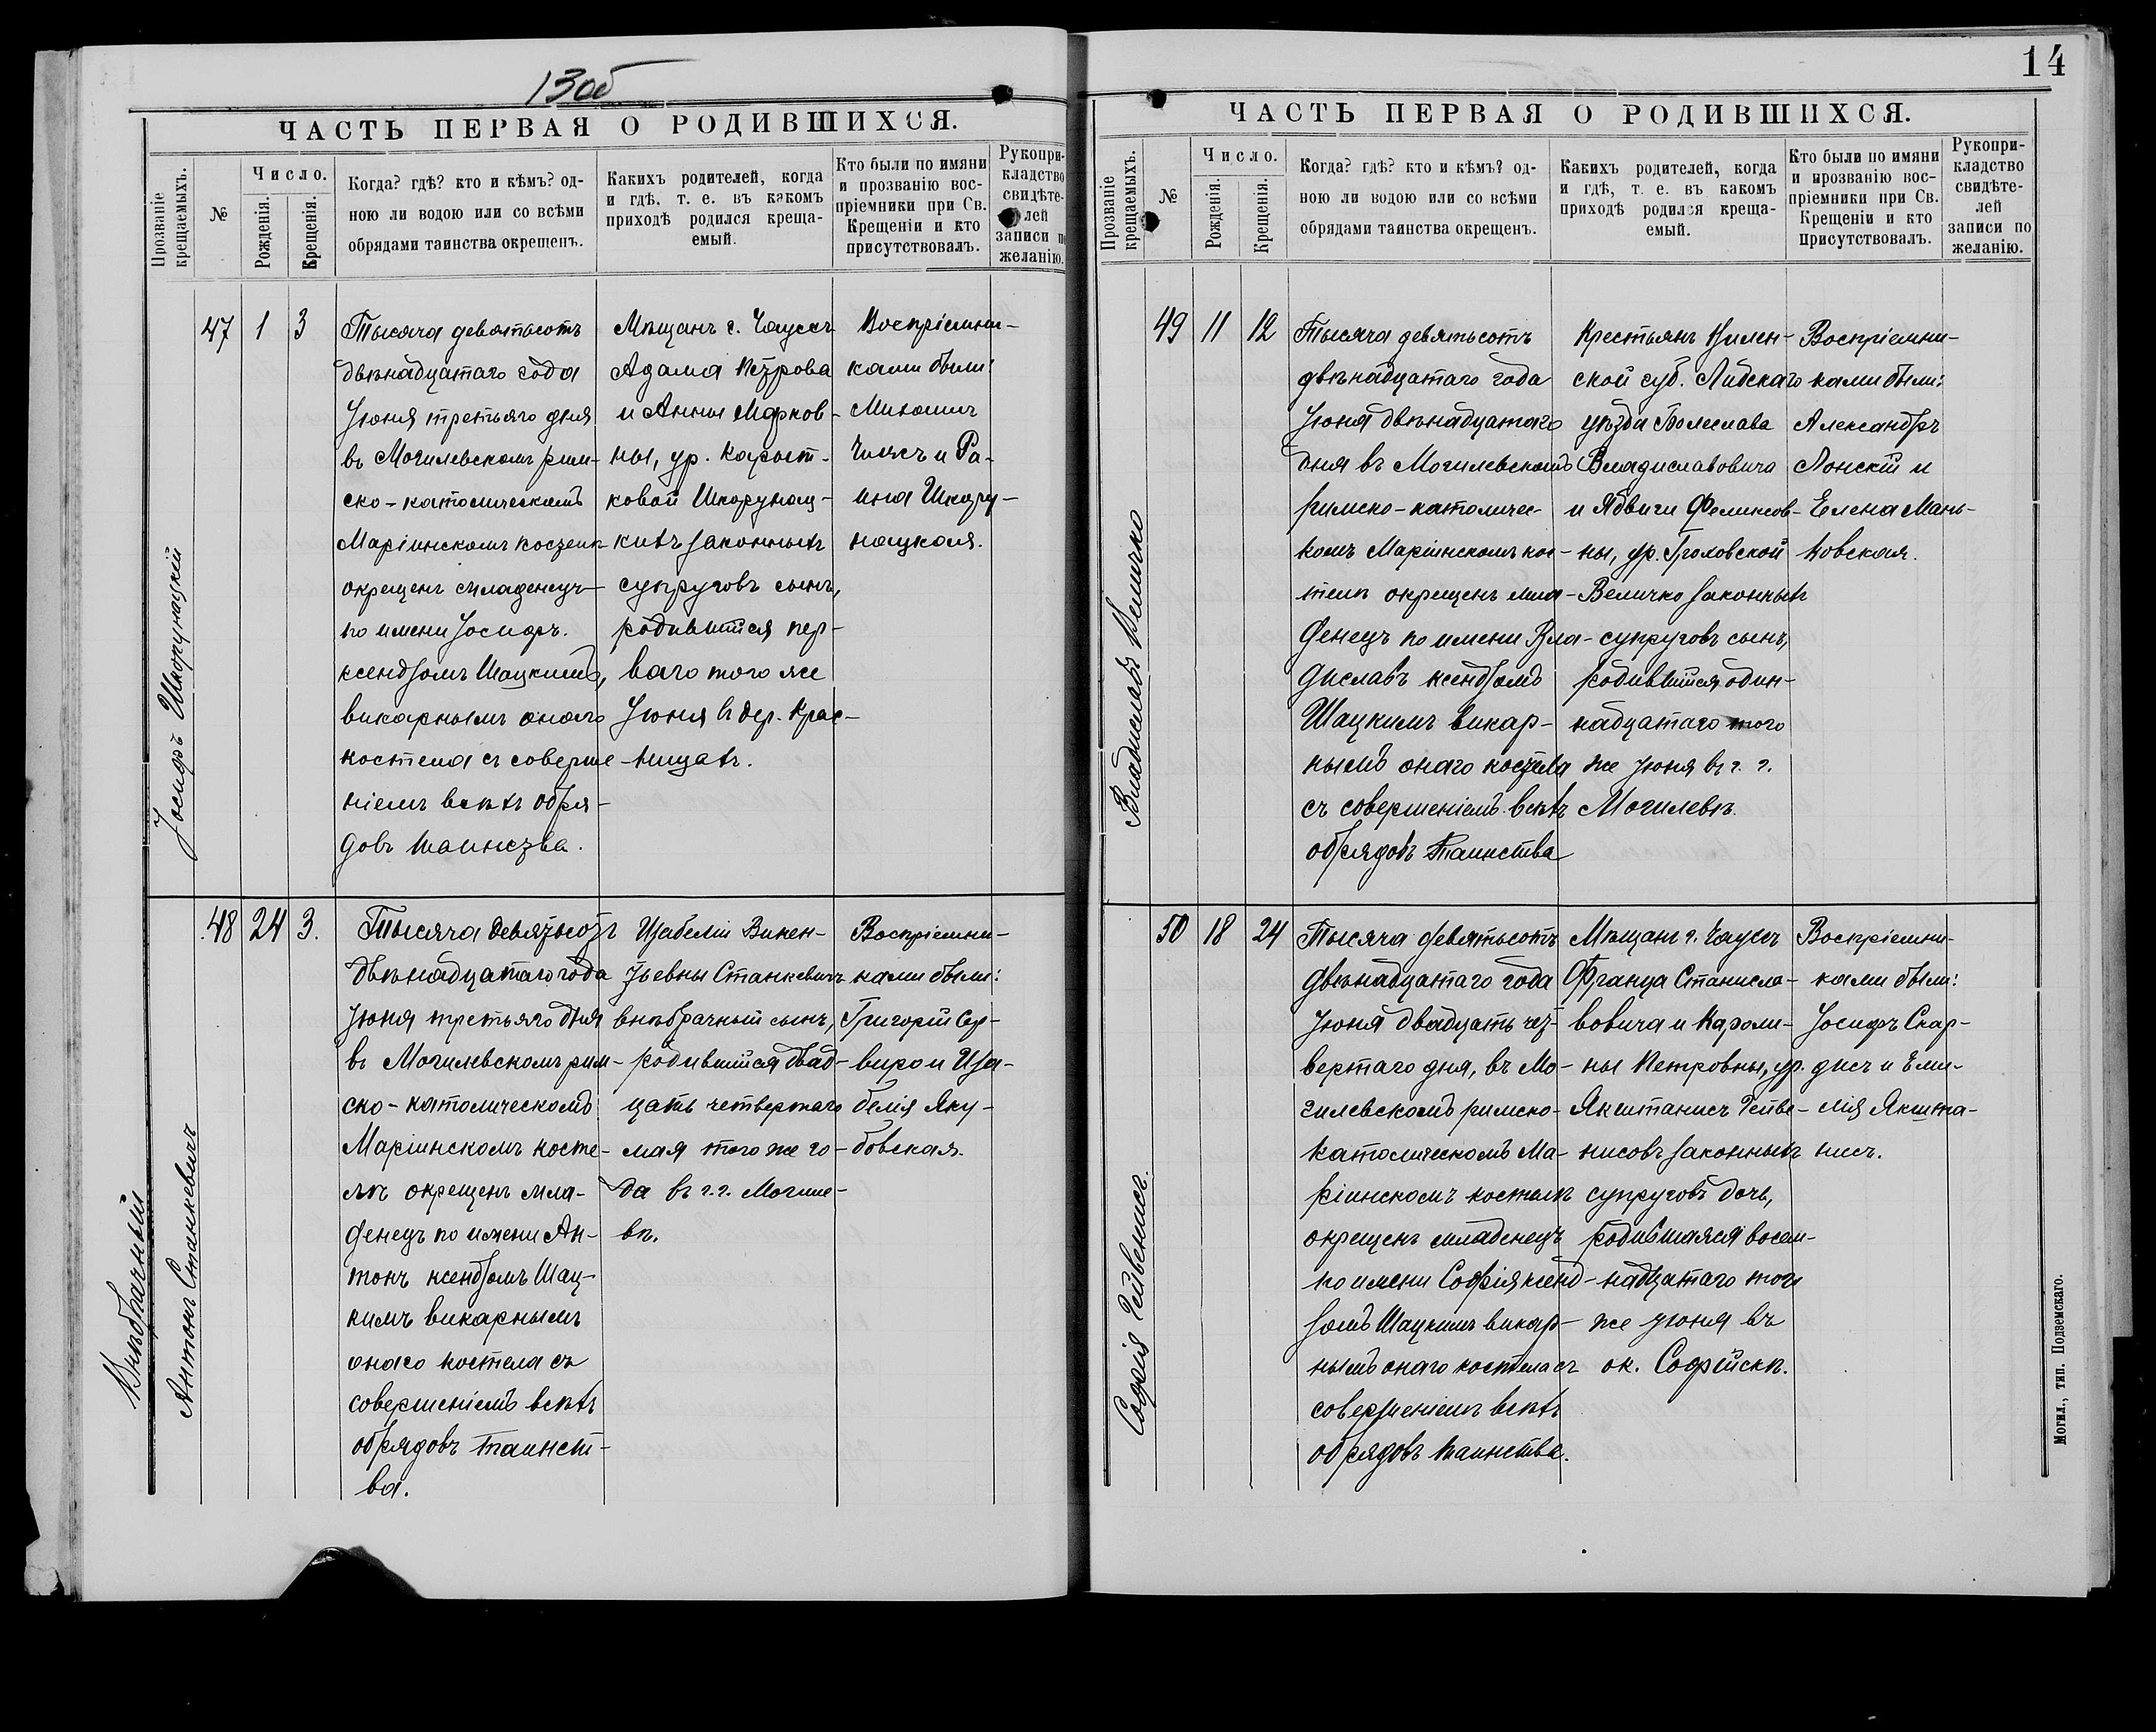 13об
ЧАСТЬ ПЕРВАЯ О РОДИВШИХСЯ.
Прозваніе крещаемыхъ.
№
Число.
Рожденія.
Крещенія.
Когда? гдѣ? кто и кѣмъ? од-
ною ли водою или со всѣми
обрядами таинства окрещенъ.
Какихъ родителей, когда
и гдѣ, т. е. въ какомъ
приходѣ родился креща-
емый.
Кто были по имяни
и прозванію вос-
пріемники при Св.
Крещеніи и кто
присутствовалъ.
Рукопри-
кладство
свидѣте-
лей
записи по
желанію.
Іосифъ Шкорунацкій
47
1
3
Тысяча девятьсотъ
двѣнадцатаго года
Іюня третьяго дня
въ Могилевскомъ рим-
ско-католическомъ
Маріинскомъ костелѣ
окрещенъ младенецъ
по имени Іосифъ.
ксендзомъ Шацкимъ,
викарнымъ онаго
костела съ соверше-
ніемъ всѣхъ обря-
довъ таинства.
Мѣщанъ г. Чаусъ
Адама Петрова
и Анны Марков-
ны, ур. Карот-
ковой Шкорунац-
кихъ законныхъ
супруговъ сынъ,
родившійся пер-
ваго того же
Іюня въ дер. Крас-
ницахъ.
Воспріемни-
ками были:
и Ра-
ина Шкору-
нацкая.
Внѣбрачный
Антонъ Станкевичъ
48
24
3.
Тысяча девятьсотъ
двѣнадцатаго года
Іюня третьяго дня
въ Могилевскомъ рим-
ско-католическомъ
Маріинскомъ косте-
лѣ окрещенъ мла-
денецъ по имени Ан-
тонъ ксендзомъ Шац-
кимъ викарнымъ
онаго костела съ
совершеніемъ всѣхъ
обрядовъ таинст-
ва.
Изабеліи Викен-
тьевны Станкевичъ
внѣбрачный сынъ,
родившійся двад-
цать четвертаго
мая того же го-
да въ г.г. Могиле-
вѣ.
Воспріемни-
ками были:
Григорій Сер-
виро и Иза-
белія Яку-
бовская.
14
ЧАСТЬ ПЕРВАЯ О РОДИВШИХСЯ.
Прозваніе крещаемыхъ.
№
Число.
Рожденія.
Крещенія.
Когда? гдѣ? кто и кѣмъ? од-
ною ли водою или со всѣми
обрядами таинства окрещенъ.
Какихъ родителей, когда
и гдѣ, т. е. въ какомъ
приходѣ родился креща-
емый.
Кто были по имяни
и прозванію вос-
пріемники при Св.
Крещеніи и кто
присутствовалъ.
Рукопри-
кладство
свидѣте-
лей
записи по
желанію.
Владиславъ Величко
49
11
12
Тысяча девятьсотъ
двѣнадцатаго года
Іюня двѣнадцатаго
дня въ Могилевскомъ
римско-католичес-
комъ Маріинскомъ кос-
телѣ окрещенъ мла-
денецъ по имени Вла-
диславъ ксендзомъ
Шацкимъ викар-
нымъ онаго костела
съ совершеніемъ всѣхъ
обрядовъ Таинства
Крестьянъ Вилен-
ской губ. Лидскаго
уѣзда Болеслава
Владиславовича
и Ядвиги Феликсов-
ны, ур. Гроховской
Величко законныхъ
супруговъ сынъ,
родившійся один-
надцатаго того
же Іюня въ г. г.
Могилевѣ.
Воспріемни-
ками были:
Александръ
Лонскій и
Елена Мань-
ковская.
Софія Гейвенисъ.
50
18
24
Тысяча девятьсотъ
двѣнадцатаго года
Іюня двадцать чет-
вертаго дня, въ Мо-
гилевскомъ римско-
католическомъ Ма-
ріинскомъ костелѣ
окрещенъ младенецъ
по имени Софія ксенд-
зомъ Шацкимъ викар-
нымъ онаго костела съ
совершеніемъ всѣхъ
обрядовъ таинства.
Мѣщанъ г. Чаусъ
Франца Станисла-
вовича и Кароли-
ны Петровны, ур.
Якштанисъ Гейве-
нисовъ законныхъ
супруговъ дочь,
родившаяся восем-
надцатаго того
же іюня въ
ок. Софійскѣ.
Воспріемни-
ками были:
Іосифъ Скар-
дисъ и Эми-
лія Якшта-
нисъ.
Могил., тип. Подземскаго.